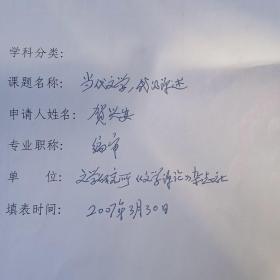 学科分类:
课题名称: 当代文学,我的评述
申请人姓名: 贺兴安
专业职称: 编审
单 位: 文学研究所《文学评论》杂志社
填表时间: 2007年3月30日